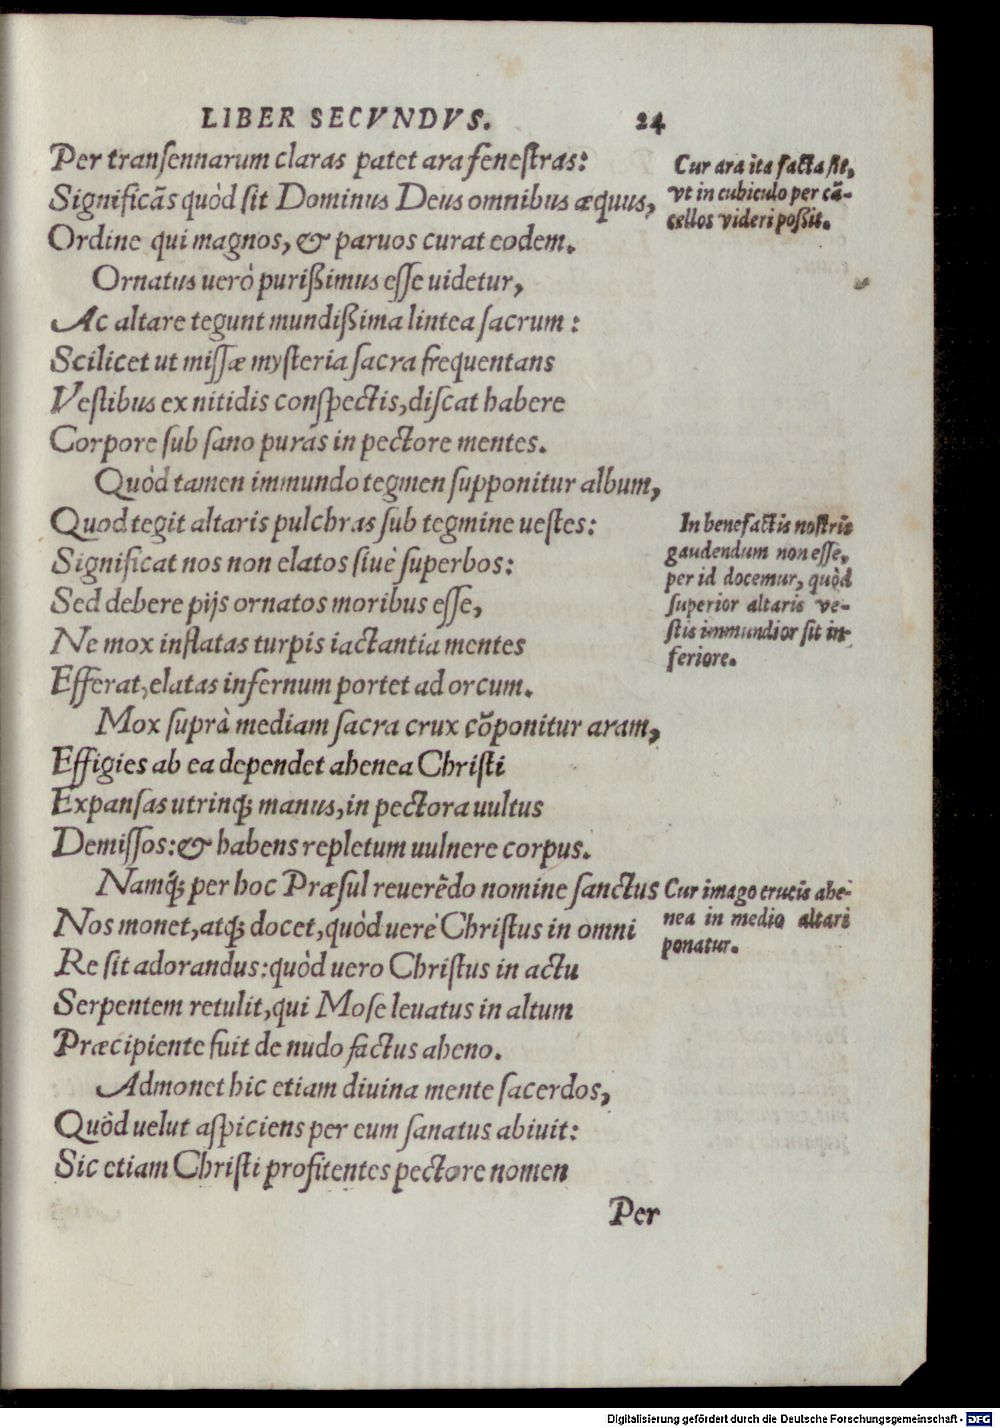 LIBER SECVNDVS. 24
Per transennarum claras patet ara fenestras:
Significãs quòd sit Dominus Deus omnibus æquus,
Ordine qui magnos, & paruos curat eodem.
Ornatus uerò purißimus esse uidetur,
Ac altare tegunt mundißima lintea sacrum:
Scilicet ut missæ mysteria sacra frequentans
Vestibus ex nitidis conspectis, discat habere
Corpore sub sano puras in pectore mentes.
Quòd tamen immundo tegmen supponitur album,
Quod tegit altaris pulchras sub tegmine uestes:
Significat nos non elatos siuè superbos:
Sed debere pijs ornatos moribus esse,
Ne mox inflatas turpis iactantia mentes
Efferat, elatas infernum portet ad orcum.
Mox suprà mediam sacra crux cõponitur aram,
Effigies ab ea dependet ahenea Christi
Expansas utrinq; manus, in pectora uultus
Demissos: & habens repletum uulnere corpus.
Namq; per hoc Præsul reuerẽdo nomine sanctus
Nos monet, atq; docet, quòd uerè Christus in omni
Re sit adorandus: quòd uero Christus in actu
Serpentem retulit, qui Mose leuatus in altum
Præcipiente fuit de nudo factus aheno.
Admonet hic etiam diuina mente sacerdos,
Quòd uelut aspiciens per eum sanatus abiuit:
Sic etiam Christi profitentes pectore nomen
Per
Cur ara ita facta sit,
vt in cubiculo per cã-
cellos videri poßit.
In benefactis nostris
gaudendum non esse,
per id docemur, quòd
superior altaris ve-
stis immundior sit in-
feriore.
Cur imago crucis ahe-
nea in medio altari
ponatur.
Digitalisierung gefördert durch die Deutsche Forschungsgemeinschaft - DFG